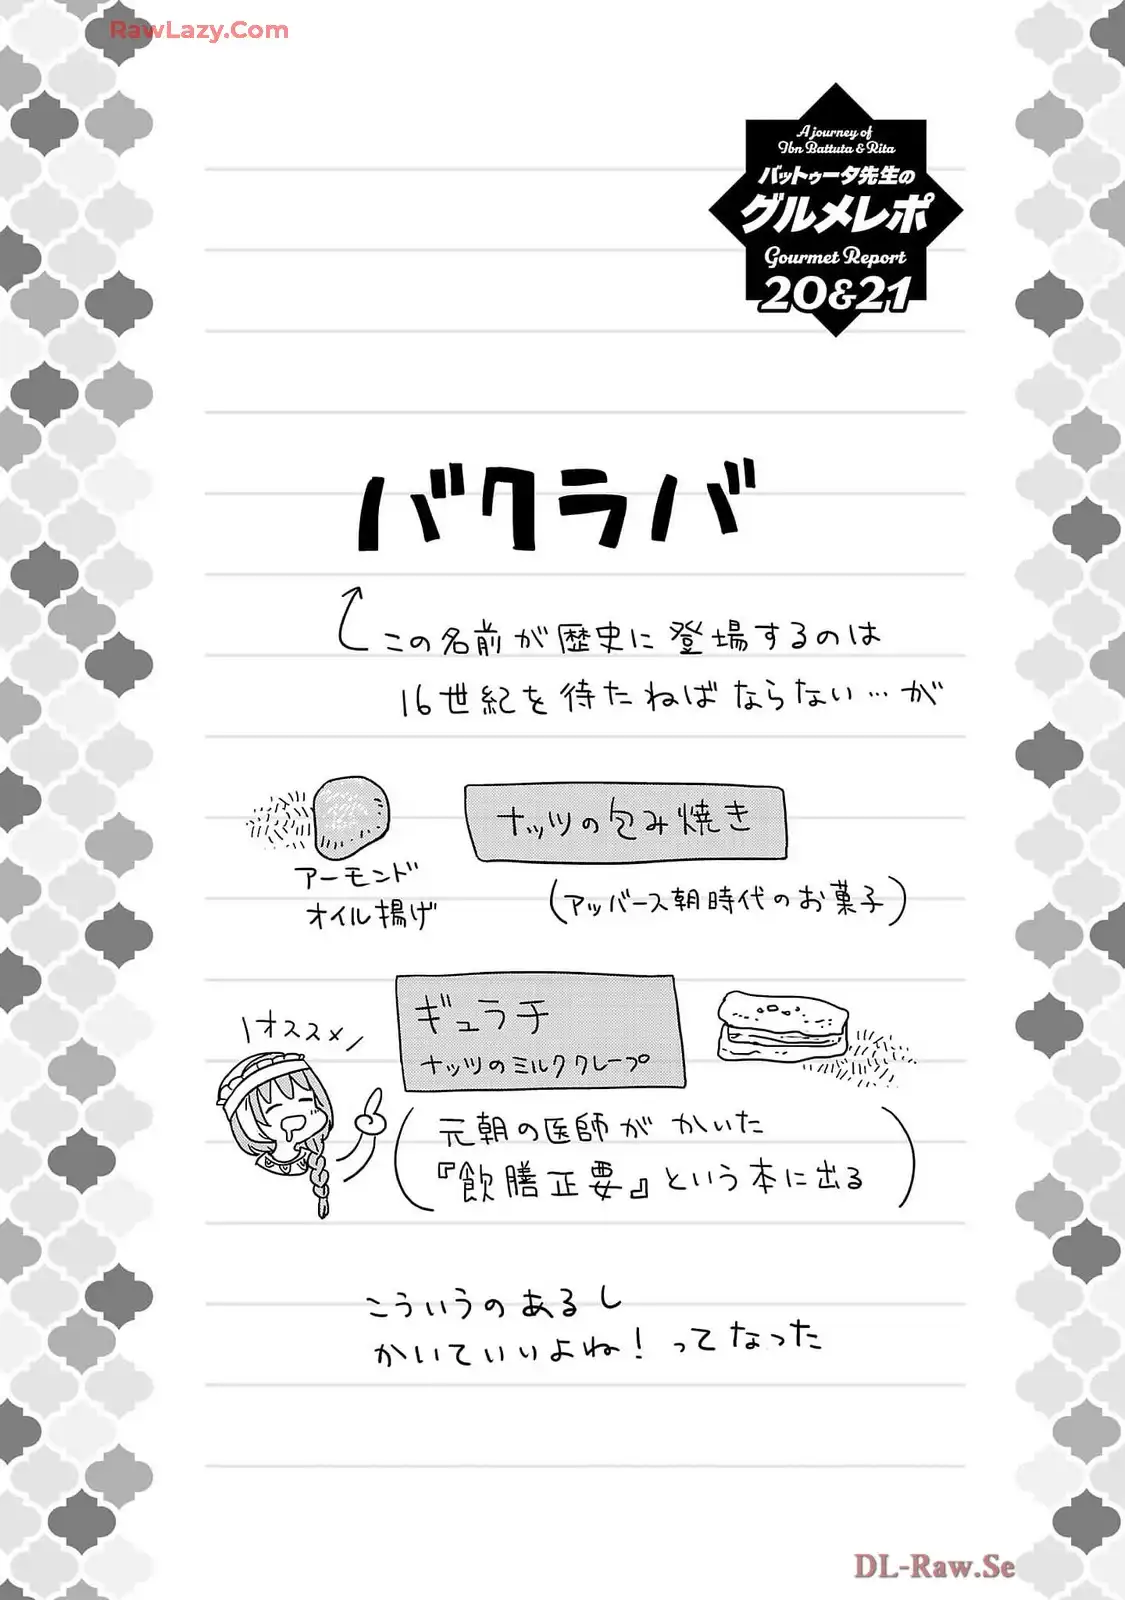 RawLazy.Com
A journey of
Ibn Battuta & Rita
バットゥータ先生の
グルメレポ
Gourmet Report
20&21
バクラバ
この名前が歴史に登場するのは
16世紀を待たねばならない…が
ナッツの包み焼き
(アッバース朝時代のお菓子)
アーモンド
オイル揚げ
オススメ
ギュラチ
ナッツのミルククレープ
(元朝の医師がかいた
『飲膳正要』という本に出る)
こういうのあるし
かいていいよね!ってなった
DL-Raw.Se